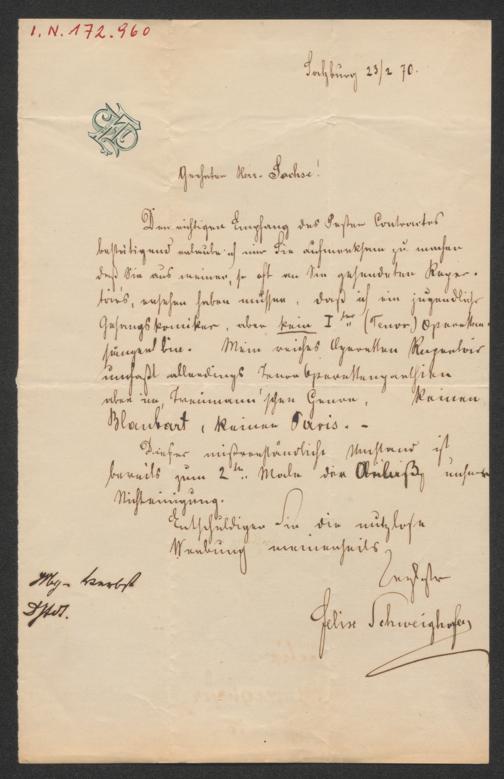 I.N.172.960
Salzburg 23/2 70.
Geehrter Herr Sachse!
Den richtigen Empfang des Pester Contractes
bestätigend erlaube ich mir Sie aufmerksam zu machen
daß Sie aus meinen, so oft an Sie gesendeten Reper-
toirs, ersehen haben müssen, daß ich ein jugendlicher
Gesangskomiker, aber kein Iter (Tenor) Operetten
sänger bin. Mein reiches Operetten Repertoir
umfaßt allerdings Tenoroperettenparthien
aber im, Treumann'schen Genre, keinen
Blaubart, keinen Paris. –
Dieser mißverständliche Umstand ist
bereits zum 2ten Male der Anlaß, unserer
Nichteinigung.
Entschuldigen Sie die nutzlose
Werbung meinerseits
Felix Schweighofer